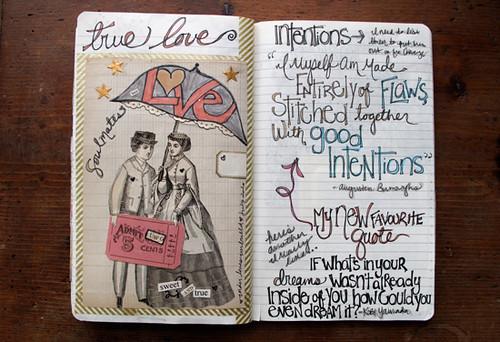 true love
LOVE
Soulmates
ADMIT TWO
5
CENTS
sweet
true
Intentions → i need to
"I Myself Am Made
Entirely of FLAWS,
Stitched together
With good
INTENTIONS"
- augusten Burroughs
My new FAVOURITE
quote
here's
another
i really
liked...
IF WHAT'S in your
dreams WASN'T already
Inside of YOU, how Could you
even dream it?